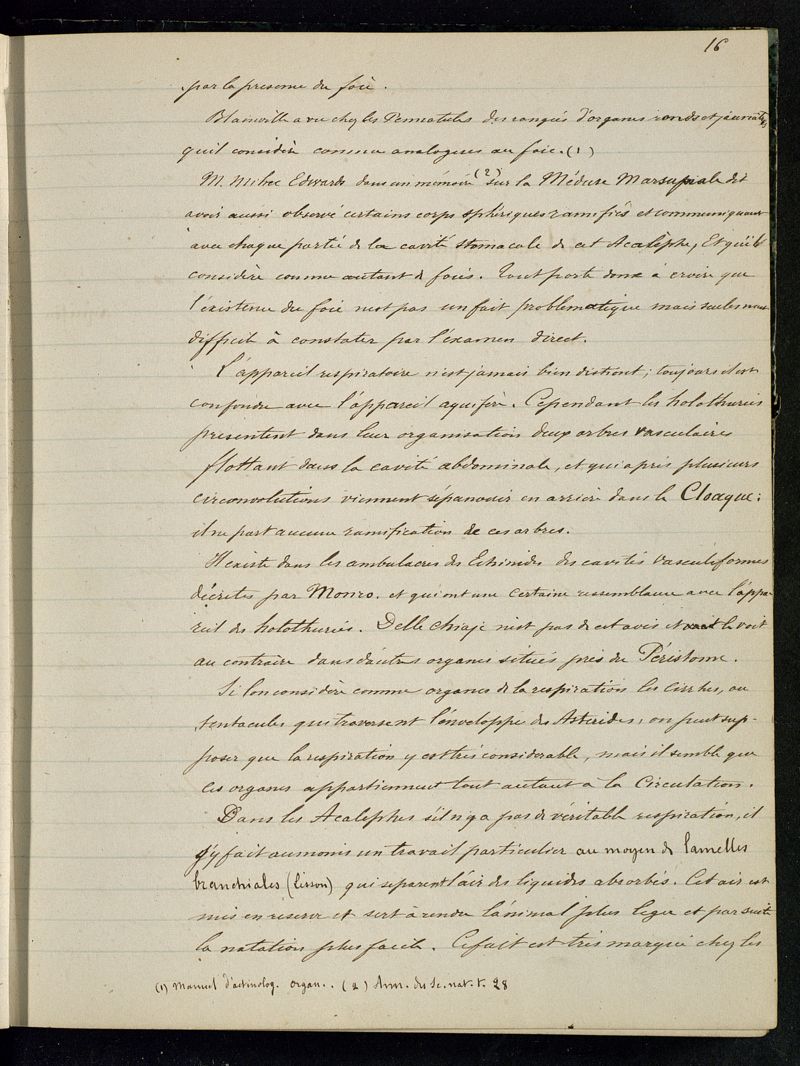 16
par la presence du foie.
Blainville a vu chez les Pennatules des rangées d'organes ronds et jaunatres,
qu'il considère comme analogues au foie. (1)
M. Milne Edwards dans un mémoire (2) sur la Méduse Marsupiale dit
avoir aussi observé certains corps sphériques ramifiés et communiquant
avec chaque partie de la cavité stomacale de cet Acalephe, Et qu'il
considère comme autant de foies. Tout porte donc à croire que
l'existence du foie n'est pas un fait problematique mais seulement
difficile à constater par l'examen direct.
L'appareil respiratoire n'est jamais bien distinct; toujours il est
confondu avec l'appareil aquifère. Cependant les holothuries
presentent dans leur organisation deux arbres vasculaires
flottant dans la cavité abdominale, et qui après plusieurs
circonvolutions viennent s'épanouir en arrière dans le Cloaque:
il ne part aucune ramification de ces arbres.
Il existe dans les ambulacres des Echinides des cavités vasculiformes
décrites par Monro. et qui ont une certaine ressemblance avec l'appa-
reil des holothuries. Delle Chiaje n'est pas de cet avis et le voit
au contraire dans d'autres organes situés près du Péristome.
Si l'on considère comme organes de la respiration les cirrhes, ou
tentacules qui traversent l'enveloppe des Asterides, on peut sup-
poser que la respiration y est très considerable, mais il semble que
ces organes appartiennent tout autant à la Circulation.
Dans les Acalephes s'il n'y a pas de véritable respiration, il
s'y fait au moins un travail particulier au moyen de lamelles
branchiales (Lesson) qui separent l'air des liquides absorbés. Cet air est
mis en reserve et sert à rendre l'animal plus leger et par suite
la natation plus facile. Ce fait est très marqué chez les
(1) Manuel d'actinolog. organ.. (2) Ann. des Sc. nat. t. 28